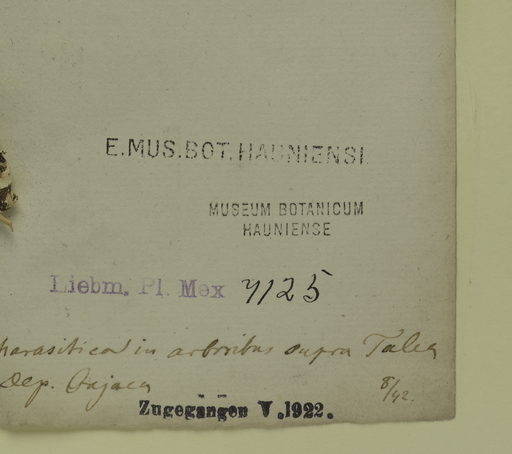 E.MUS.BOT.HAUNIENSI.
MUSEUM BOTANICUM
HAUNIENSE
Liebm. Pl. Mex 7125
parasitica in arboribus supra Talea
Dep. Oajaca 8/42.
Zugegangen V.1922.